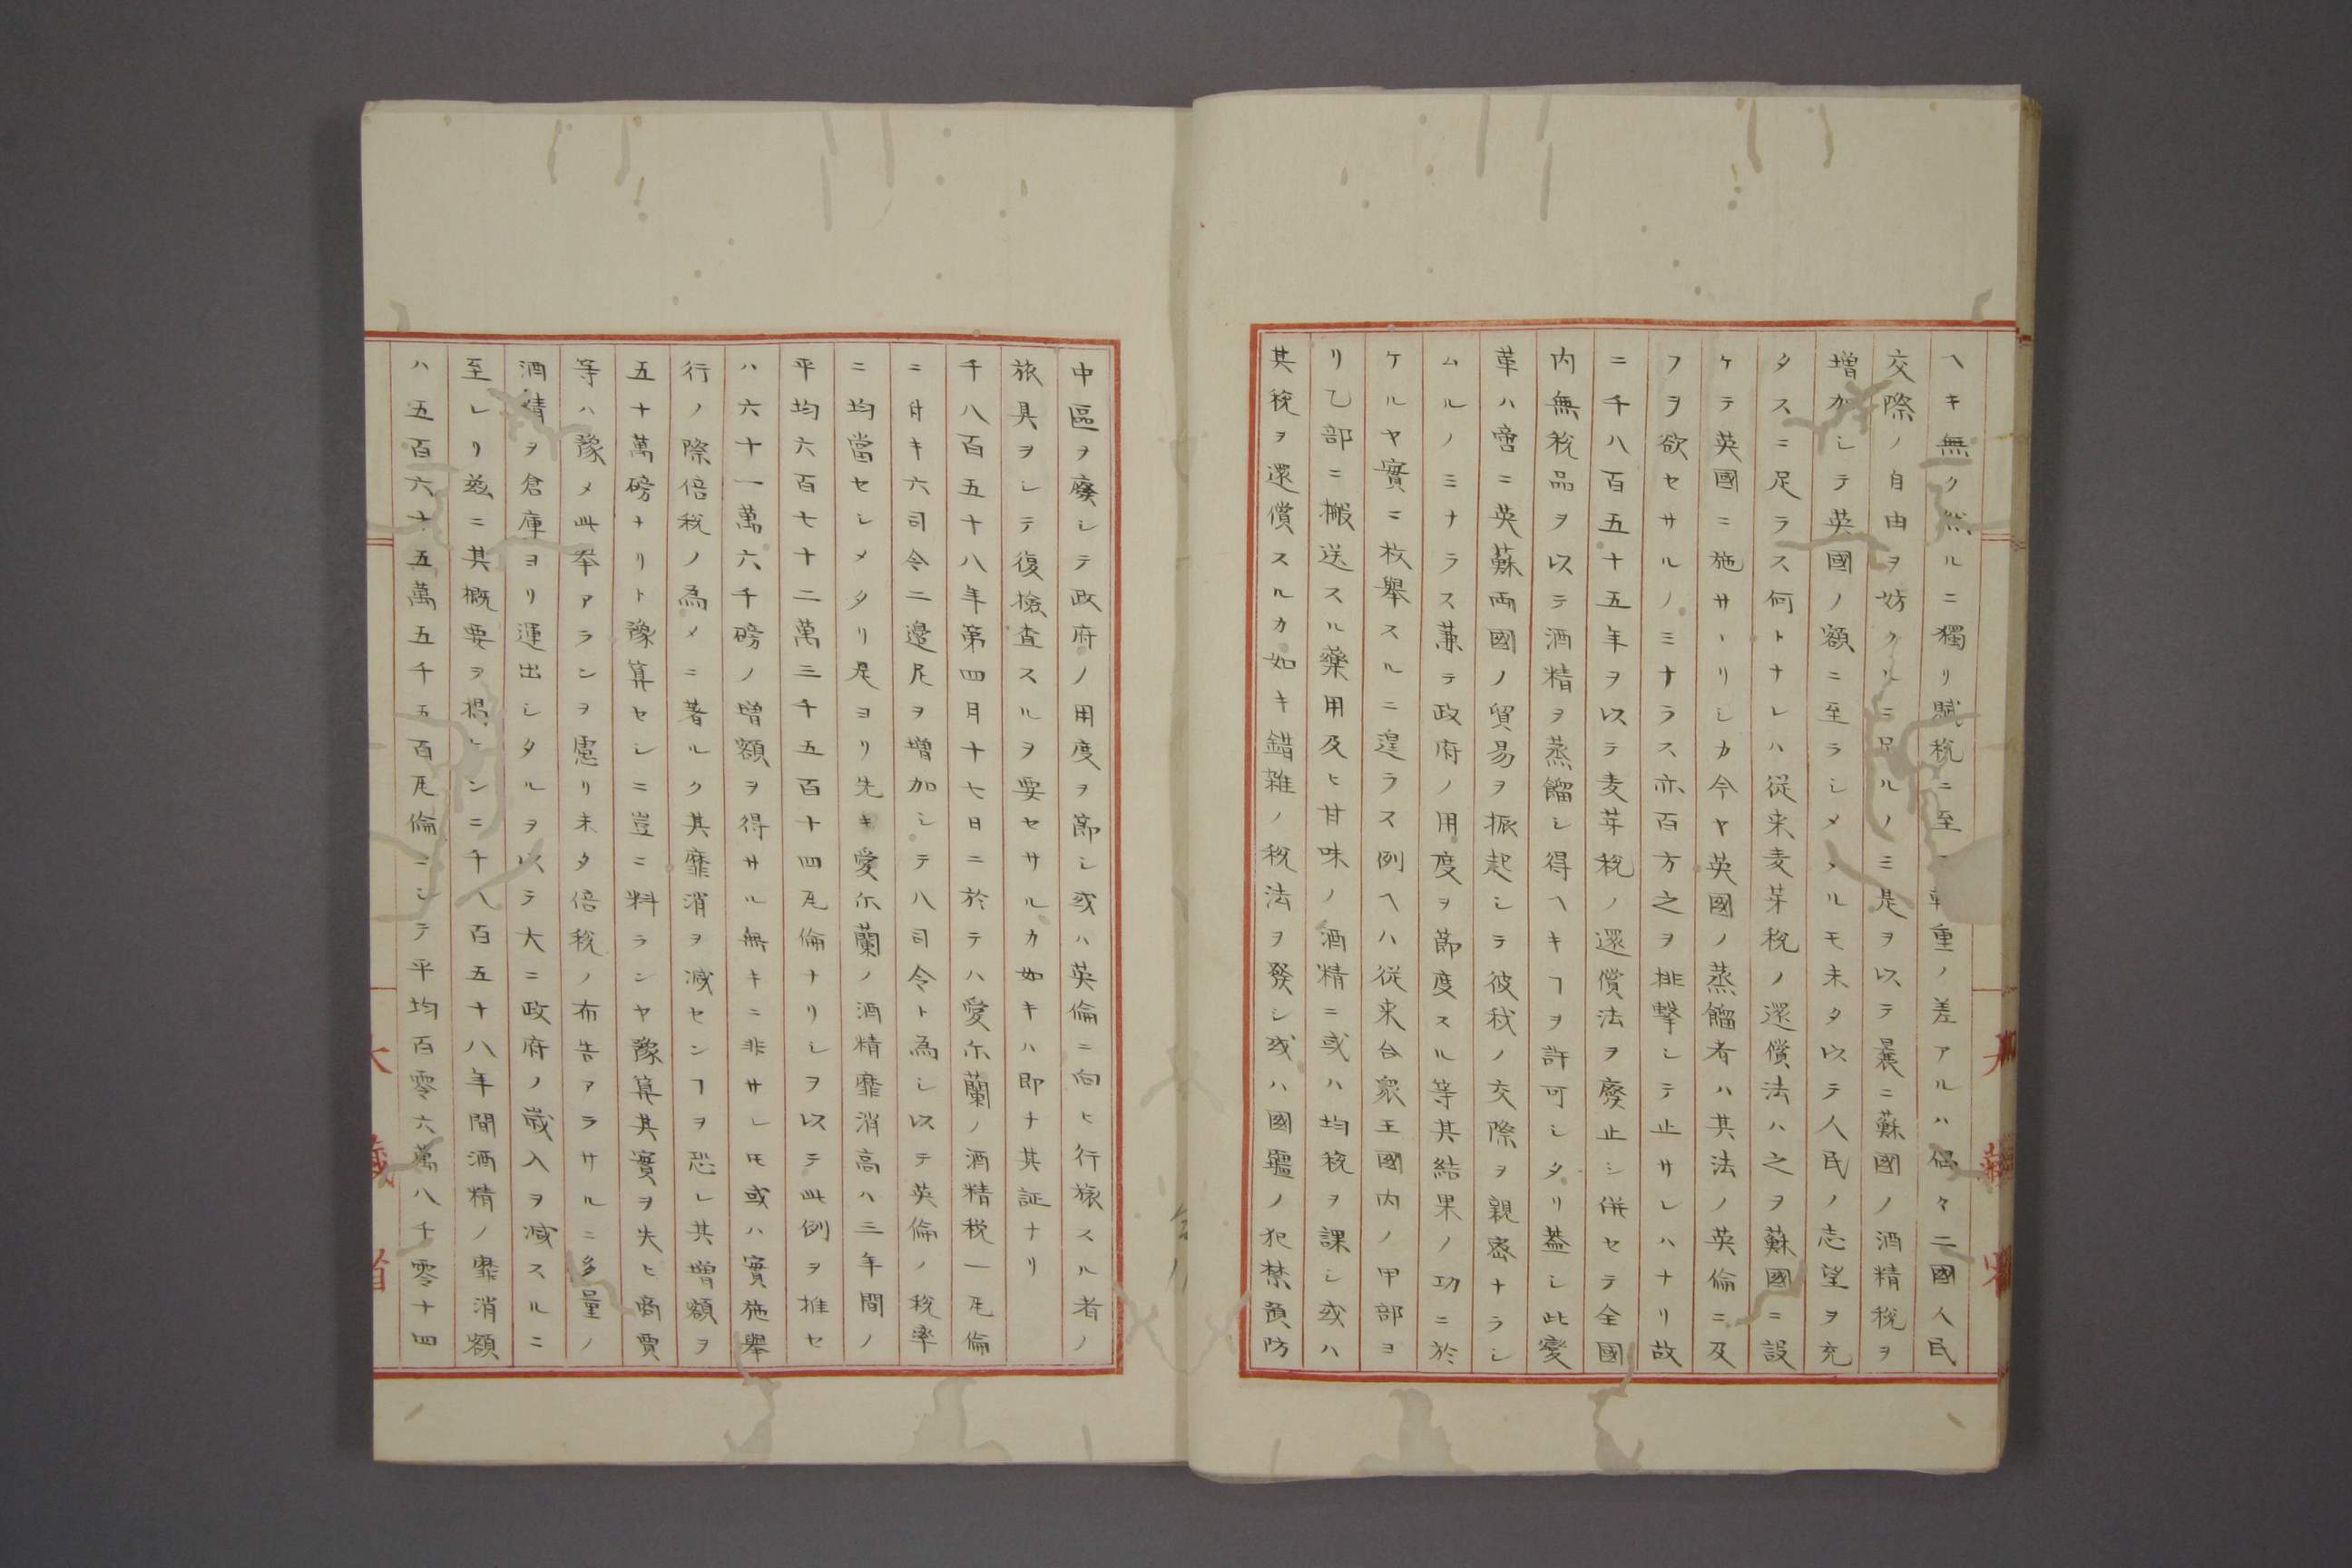 ヘキ無ク然ルニ獨リ賦税ニ至 重ノ差アルハ偶々二國人民
交際ノ自由ヲ妨クルニ足ルノミ是ヲ以テ曩ニ蘇國ノ酒精税ヲ
増加シテ英國ノ額ニ至ラシメタルモ未タ以テ人民ノ志望ヲ充
タスニ足ラス何トナレハ従来麦芽税ノ還償法ハ之ヲ蘇國ニ設
ケテ英國ニ施サヽリシカ今ヤ英國ノ蒸餾者ハ其法ノ英倫ニ及
フヲ欲セサルノミナラス亦百方之ヲ排撃シテ止サレハナリ故
ニ千八百五十五年ヲ以テ麦芽税ノ還償法ヲ廢止シ併セテ全國
内無税品ヲ以テ酒精ヲ蒸餾シ得ヘキヿヲ許可シタリ蓋シ此變
革ハ啻ニ英蘇両國ノ貿易ヲ振起シテ彼我ノ交際ヲ親密ナラシ
ムルノミナラス兼テ政府ノ用度ヲ節度スル等其結果ノ功ニ於
ケルヤ實ニ枚舉スルニ遑ラス例ヘハ従来合衆王國内ノ甲部ヨ
リ乙部ニ搬送スル藥用及ヒ甘味ノ酒精ニ或ハ均税ヲ課シ或ハ
其税ヲ還償スルカ如キ錯雑ノ税法ヲ發シ或ハ國疆ノ犯禁負防
中區ヲ廢シテ政府ノ用度ヲ節シ或ハ英倫ニ向ヒ行旅スル者ノ
旅具ヲシテ復檢査スルヲ要セサルカ如キハ即ナ其証ナリ
千八百五十八年第四月十七日ニ於テハ愛尓蘭ノ酒精税一瓦倫
ニ付キ六司令二邉尼ヲ増加シテ八司令ト為シ以テ英倫ノ税率
ニ均當セシメタリ是ヨリ先キ愛尓蘭ノ酒精靡消高ハ三年間ノ
平均六百七十二萬三千五百十四瓦倫ナリシヲ以テ此例ヲ推セ
ハ六十一萬六千磅ノ増額ヲ得サル無キニ非サレ𪜈或ハ實施舉
行ノ際倍税ノ為メニ著ルク其靡消ヲ减センヿヲ恐レ其増額ヲ
五十萬磅ナリト豫算セシニ豈ニ料ランヤ豫算其實ヲ失ヒ商賈
等ハ豫メ此举アランヲ慮リ未タ倍税ノ布告アラサルニ多量ノ
酒精ヲ倉庫ヨリ運出シタルヲ以テ大ニ政府ノ歳入ヲ减スルニ
至レリ茲ニ其概要ヲ掲ケンニ千八百五十八年間酒精ノ靡消額
ハ五百六十五萬五千五百瓦倫ニシテ平均百零六萬八千零十四
大藏省